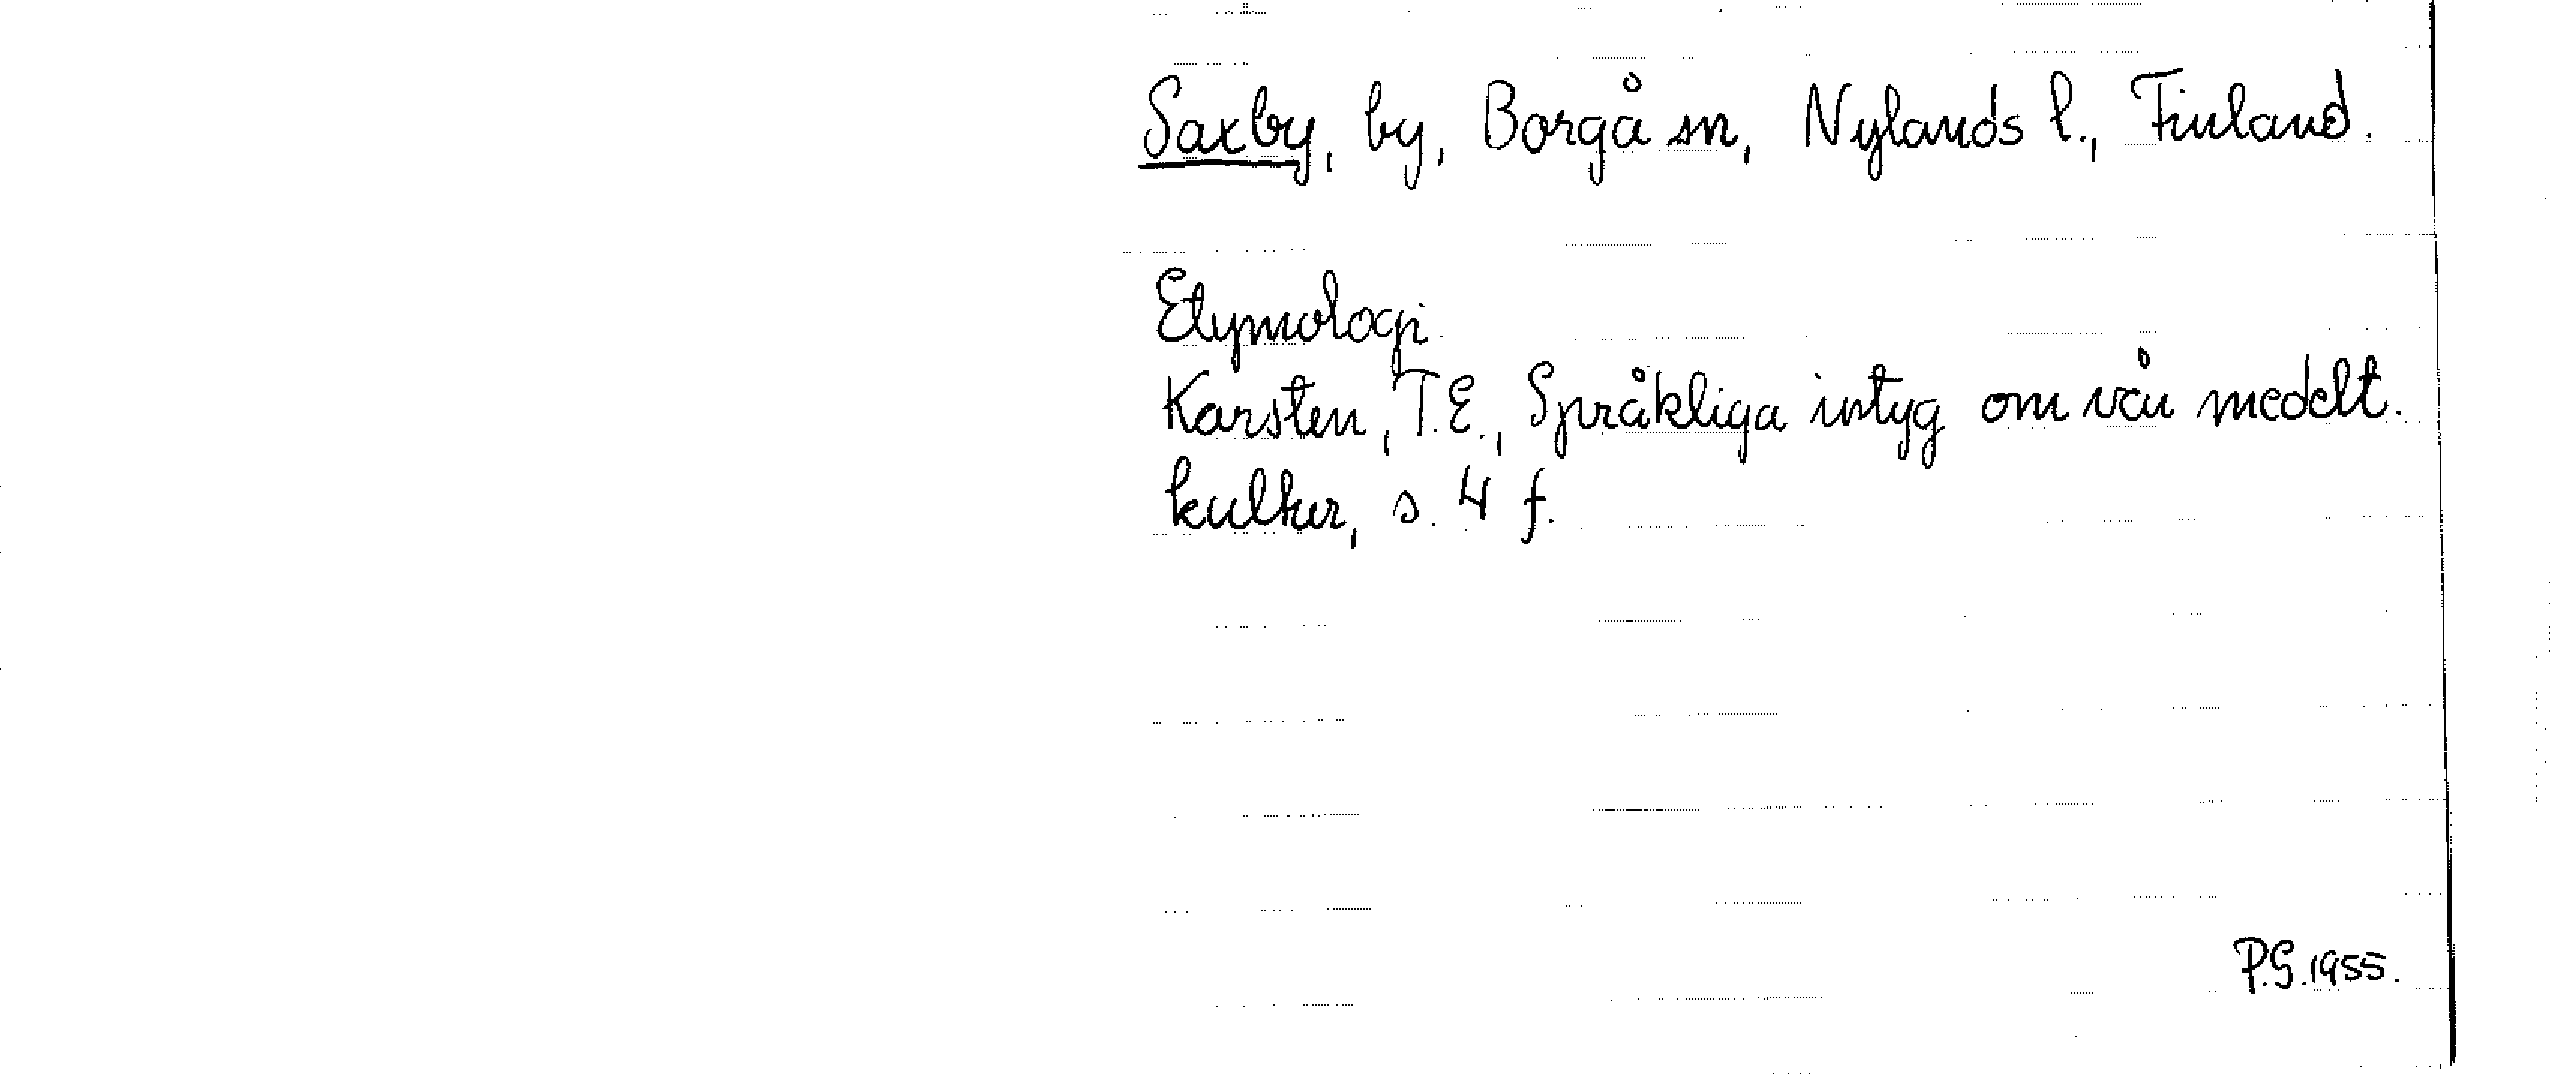 Saxby, by, Borgå sn, Nylands l., Finland.
Etymologi
Karsten, T.E., Språkliga intyg om vår medelt.
kultur, s. 4 f.
P.G. 1955.